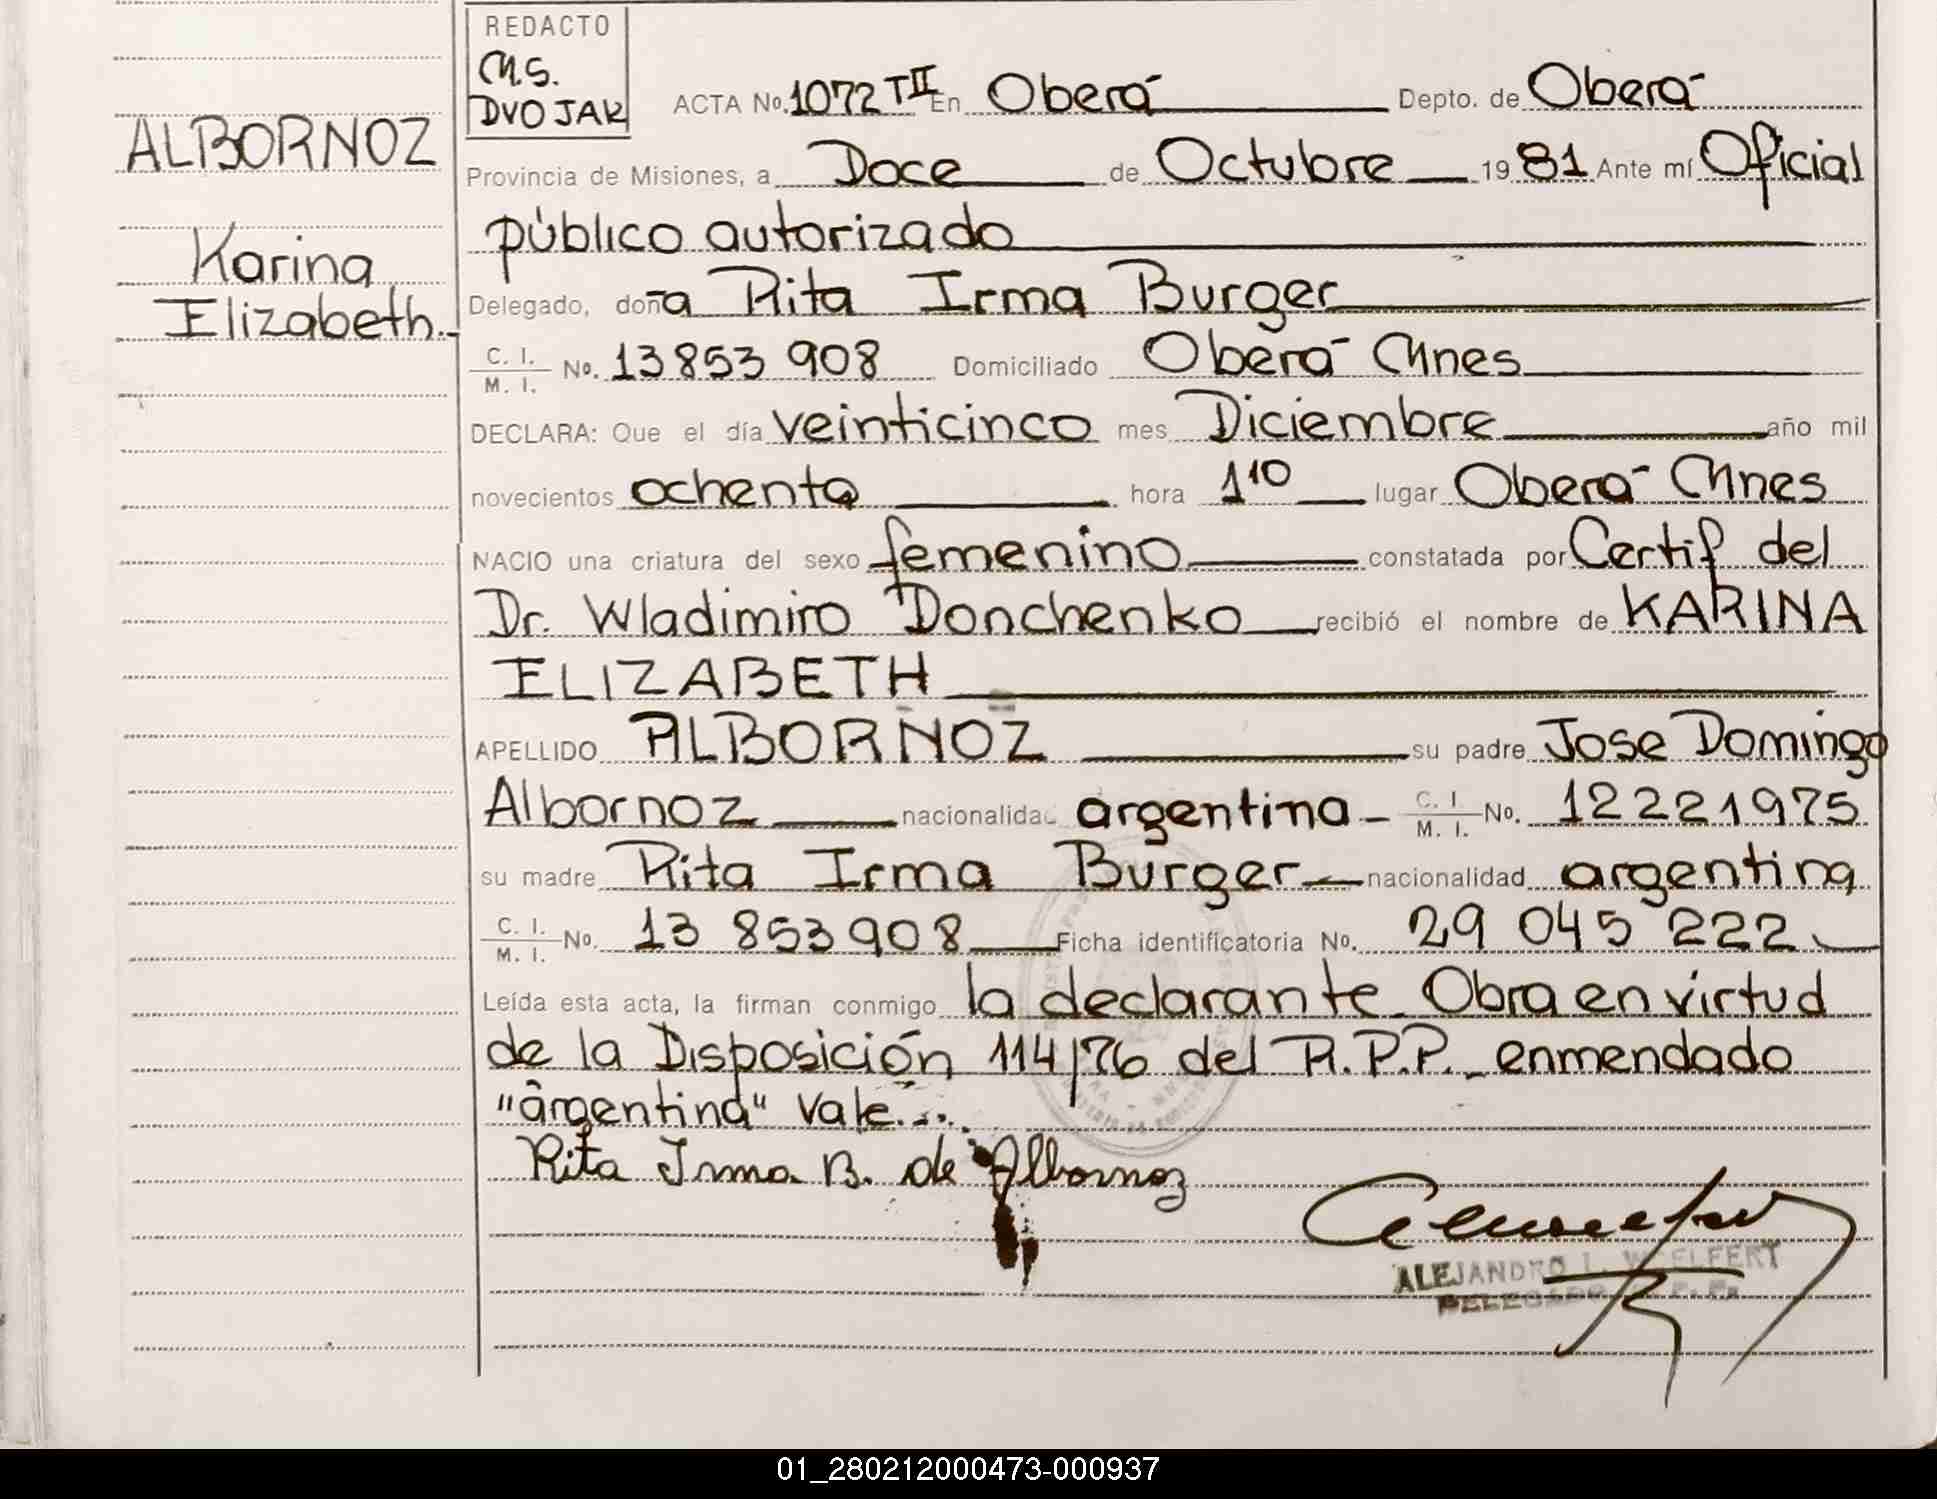 REDACTO
M.S.
DVOJAK
ACTA No. 1072 TII En Oberá Depto. de Oberá
ALBORNOZ
Provincia de Misiones, a Doce de Octubre 1981 Ante mí Oficial
público autorizado
Karina
Elizabeth.-
Delegado, doña Rita Irma Burger
C. I.
M. I. No. 13853 908 Domiciliado Oberá Mnes
DECLARA: Que el día veinticinco mes Diciembre año mil
novecientos ochenta hora 1 10 lugar Oberá Mnes
NACIO una criatura del sexo femenino constatada por Certif del
Dr. Wladimiro Donchenko recibió el nombre de KARINA
ELIZABETH
APELLIDO ALBORNOZ su padre Jose Domingo
Albornoz nacionalidad argentina - C. I. M. I. No. 12221975
su madre Rita Irma Burger nacionalidad argentina
C. I.
M. I. No. 13 853 908 Ficha identificatoria No. 29 045 222
Leída esta acta, la firman conmigo la declarante. Obra en virtud
de la Disposición 114/76 del R.P.P._ enmendado
"argentina" Vale...
Rita Irma B. de Albornoz
ALEJANDRO L. WOELFERT
DELEGADO R. P. P.
01_280212000473-000937